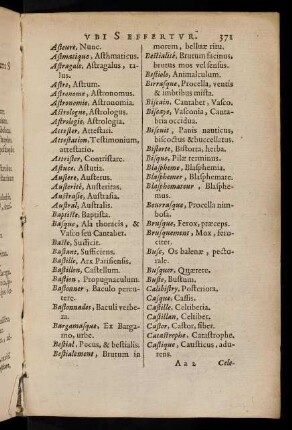 VBI S EFFERTVR. 371
Asteure, Nunc.
Astmatique, Asthmaticus.
Astragale, Astragalus, talus.
Astre, Astrum.
Astronome, Astronomus.
Astronomie, Astronomia.
Astrologue, Astrologus.
Astrologie, Astrologia.
Attester, Attestari.
Attestation, Testimonium,
attestatio.
Attrister, Contristare.
Astuce, Astutia.
Austere, Austerus.
Austerité, Austeritas.
Austrasie, Austrasia.
Austral, Australis.
Baptiste, Baptista.
Basque, Ala thoracis, &
Vasco seu Cantaber.
Baste, Sufficit.
Bastant, Sufficiens.
Bastille, Arx Parisiensis.
Bastillon, Castellum.
Bastion, Propugnaculum.
Bastonner, Baculo percutere.
Bastonnades, Baculi verbera.
Bargamasque, Ex Bargamo, urbe.
Bestial, Pecus, & bestialis.
Bestialement, Brutum in
morem, belluæ ritu.
Bestialité, Brutum facinus,
brutus mos vel sensus.
Bestiole, Animalculum.
Birrasque, Procella, ventis
& imbribus mista.
Biscain, Cantaber, Vasco.
Biscaye, Vasconia, Cantabria occidua.
Biscuit, Panis nauticus,
biscoctus & buccellatus.
Bistorte, Bistorta, herba.
Bisque, Pilæ terminus.
Blaspheme, Blasphemia.
Blasphemer, Blasphemare.
Blasphemateur, Blasphemus.
Bourrasque, Procella nimbosa.
Brusque, Ferox, præceps.
Brusquement, Mox, ferociter.
Busc, Os balenæ, pectorale.
Busquer, Quærere.
Buste, Bustum.
Calibistry, Posteriora.
Casque, Cassis.
Castille, Celtiberia.
Castillan, Celtiber.
Castor, Castor, fiber.
Catastrophe, Catastrophe.
Caustique, Causticus, adurens.
Aa 2 Cele-